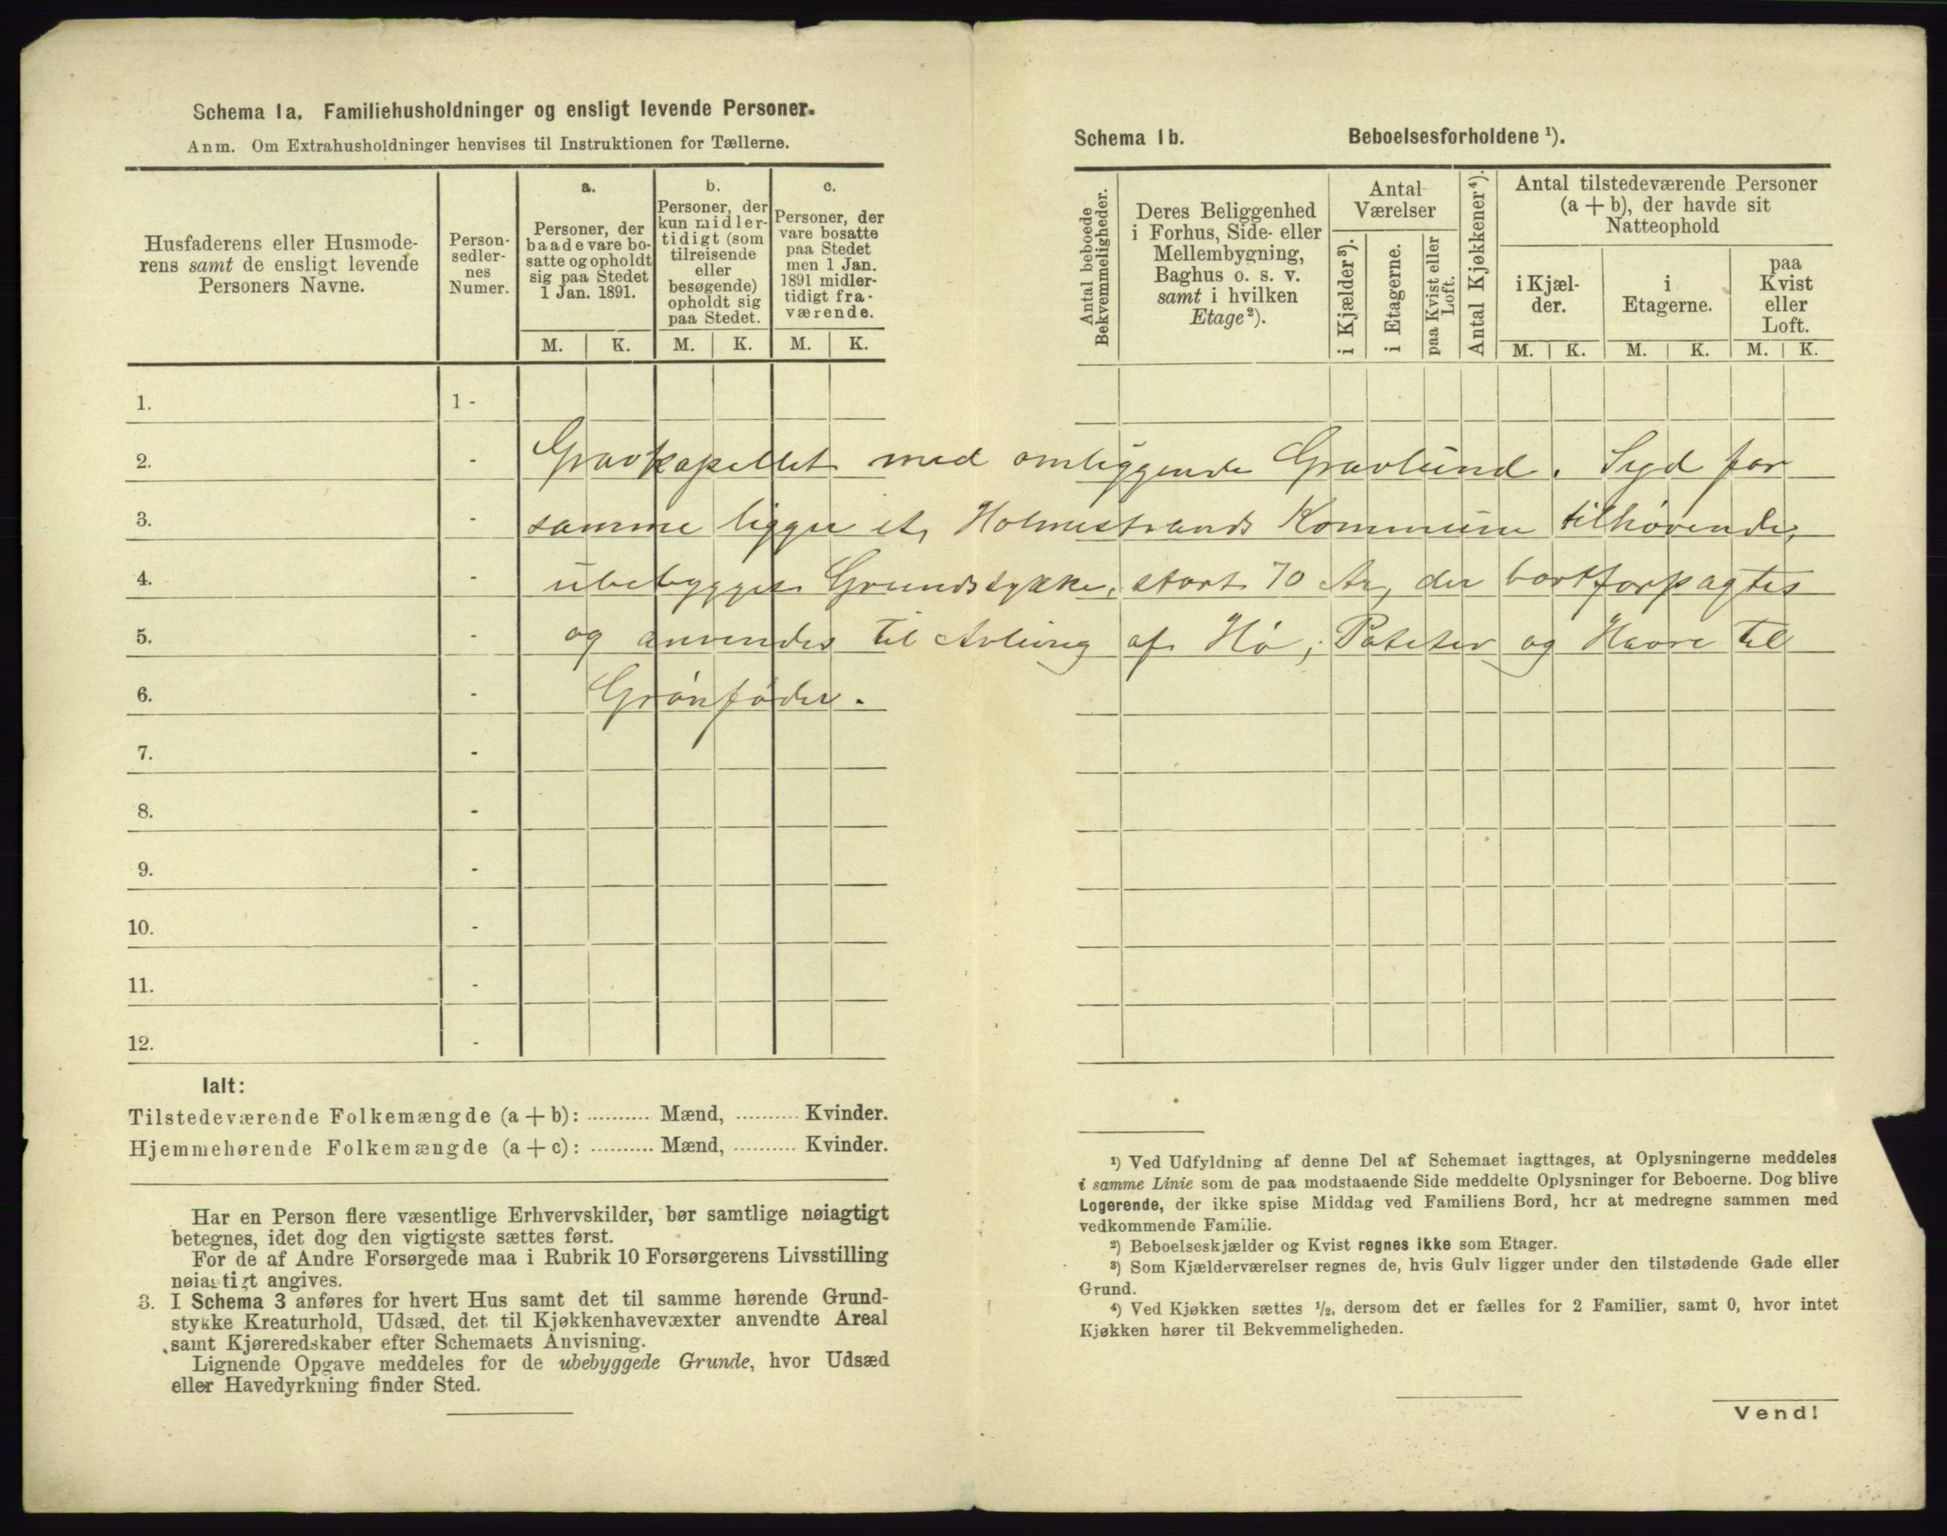 Schema 1a. Familiehusholdninger og ensligt levende Personer.
Anm. Om Extrahusholdninger henvises til Instruktionen for Tællerne.
Husfaderens eller Husmode-
rens samt de ensligt levende
Personers Navne.
Person-
sedler-
nes
Numer.
a.
Personer, der
baade vare bo-
satte og opholdt
sig paa Stedet
1 Jan. 1891.
b.
Personer, der
kun midler-
tidigt (som
tilreisende
eller
besøgende)
opholdt sig
paa Stedet.
c.
Personer, der
vare bosatte
paa Stedet
men 1 Jan.
1891 midler-
tidigt fra-
værende.
M. K. M. K. M. K.
1. 1 -
2. -
3. -
4. -
5. -
6. -
7. -
8. -
9. -
10. -
11. -
12. -
Schema 1b. Beboelsesforholdene ¹).
Antal beboede
Bekvemmeligheder.
Deres Beliggenhed
i Forhus, Side- eller
Mellembygning,
Baghus o. s. v.
samt i hvilken
Etage²).
Antal
Værelser
i Kjælder³).
i Etagerne.
paa Kvist eller
Loft.
Antal Kjøkkener⁴).
Antal tilstedeværende Personer
(a + b), der havde sit
Natteophold
i Kjæl-
der.
i
Etagerne.
paa
Kvist
eller
Loft.
M. K. M. K. M. K.
Gravkapellet med omliggende Gravlund. Syd for
samme ligger et, Holmestrands Kommune tilhørende,
ubebygget Grundstykke, stort 70 Ar, der bortforpagtes
og anvendes til Avling af Hø, Poteter og Havre til
Grønfoder.
Ialt:
Tilstedeværende Folkemængde (a + b): .......... Mænd, .......... Kvinder.
Hjemmehørende Folkemængde (a + c): .......... Mænd, .......... Kvinder.
Har en Person flere væsentlige Erhvervskilder, bør samtlige nøiagtigt
betegnes, idet dog den vigtigste sættes først.
For de af Andre Forsørgede maa i Rubrik 10 Forsørgerens Livsstilling
nøiagtigt angives.
3. I Schema 3 anføres for hvert Hus samt det til samme hørende Grund-
stykke Kreaturhold, Udsæd, det til Kjøkkenhavevæxter anvendte Areal
samt Kjøreredskaber efter Schemaets Anvisning.
Lignende Opgave meddeles for de ubebyggede Grunde, hvor Udsæd
eller Havedyrkning finder Sted.
¹) Ved Udfyldning af denne Del af Schemaet iagttages, at Oplysningerne meddeles
i samme Linie som de paa modstaaende Side meddelte Oplysninger for Beboerne. Dog blive
Logerende, der ikke spise Middag ved Familiens Bord, her at medregne sammen med
vedkommende Familie.
²) Beboelseskjælder og Kvist regnes ikke som Etager.
³) Som Kjælderværelser regnes de, hvis Gulv ligger under den tilstødende Gade eller
Grund.
⁴) Ved Kjøkken sættes ½, dersom det er fælles for 2 Familier, samt 0, hvor intet
Kjøkken hører til Bekvemmeligheden.
Vend!